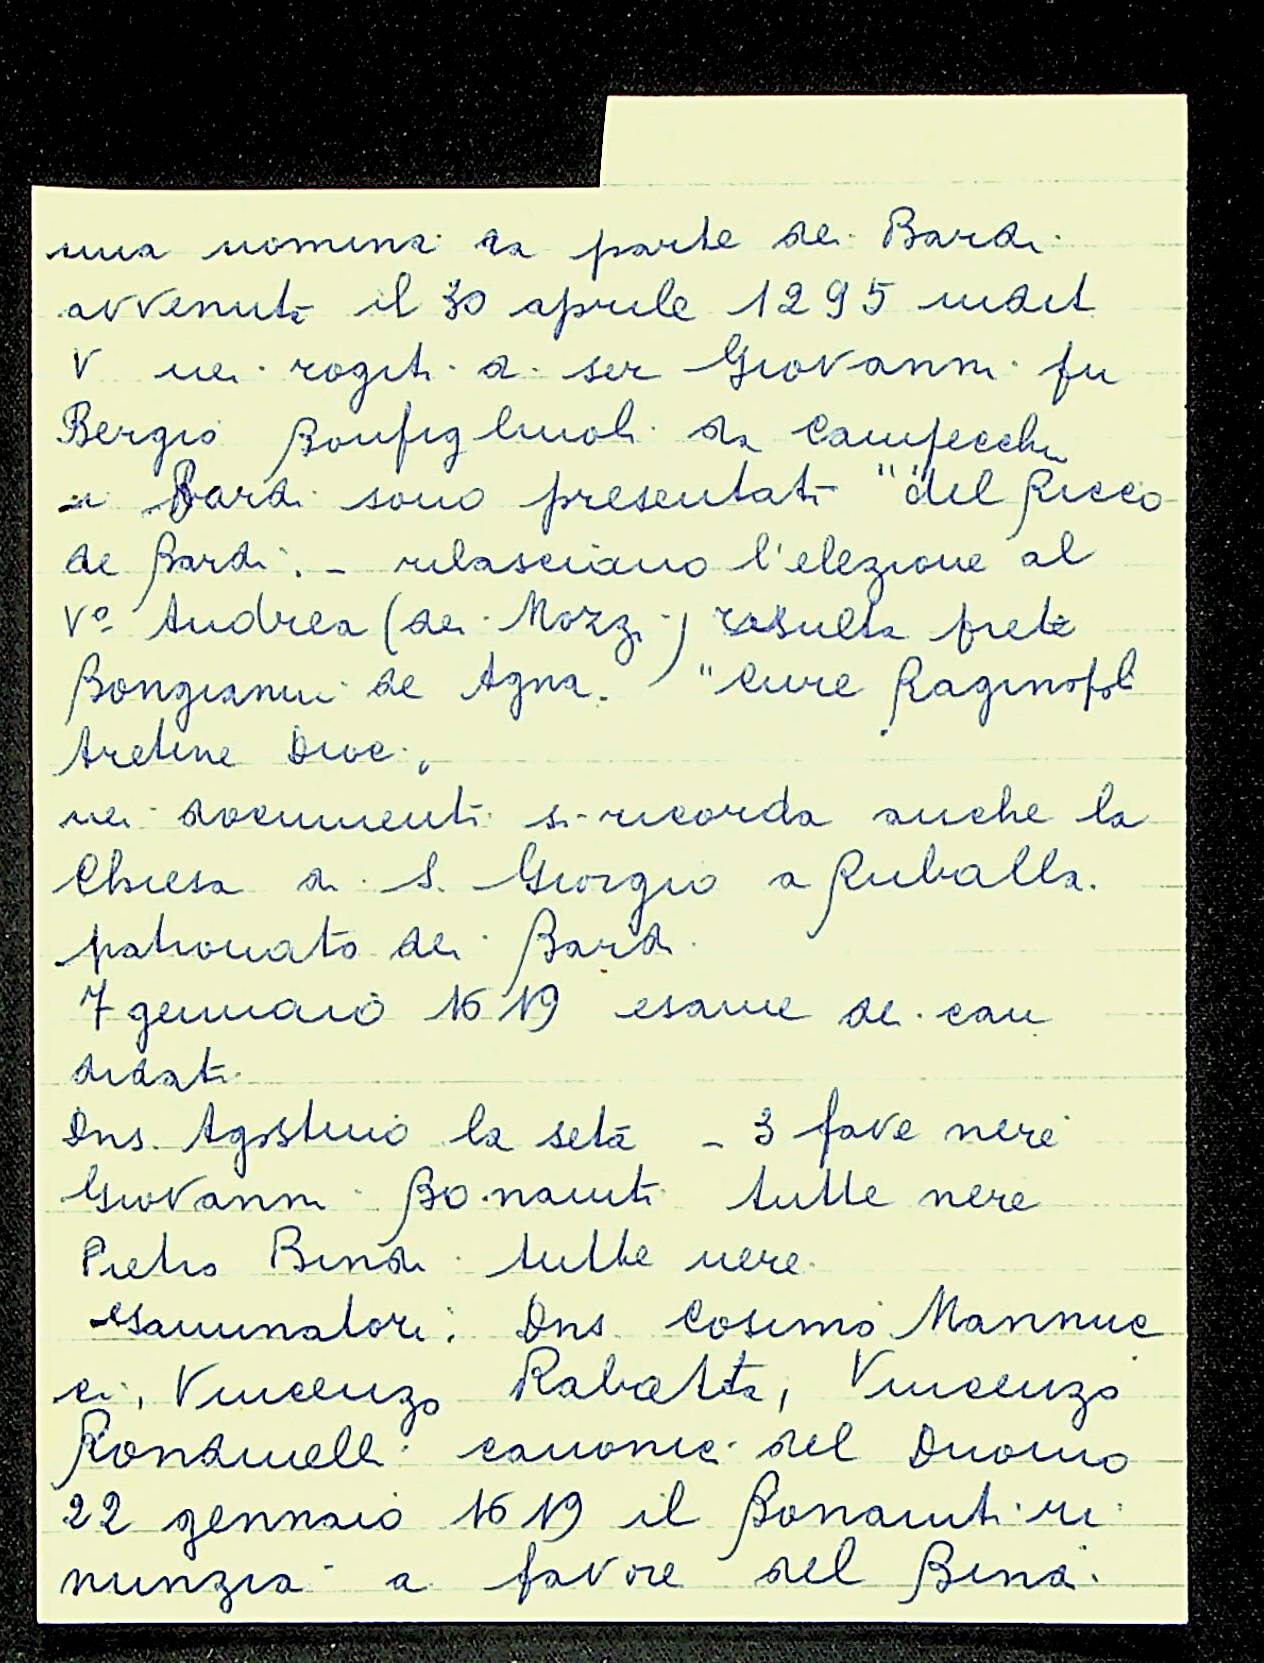 una nomina da parte dei Bardi
avvenuta il 30 aprile 1295 indit
V nei rogiti di ser Giovanni fu
Bergio Bonfigliuoli da Campecchi
i Bardi sono presentati "del Ricco
de Bardi". - rilasciano l'elezione al
Vº Andrea (dei Mozzi) risulta frate
Bongianni de Agna. "Cure Raginopoli
Aretine Dioc."
nei documenti si ricorda anche la
Chiesa di S. Giorgio a Ruballa.
patronato dei Bardi.
7 gennaio 1619 esame dei can
didati.
Dns. Agostino la seta - 3 fave nere
Giovanni Bonaiuti tutte nere
Pietro Bindi tutte nere.
esaminatori: Dns Cosimo Mannuc
ci, Vincenzo Rabatta, Vincenzo
Rondinelli canonici del Duomo
22 gennaio 1619 il Bonaiuti ri
nunzia a favore del Bindi.